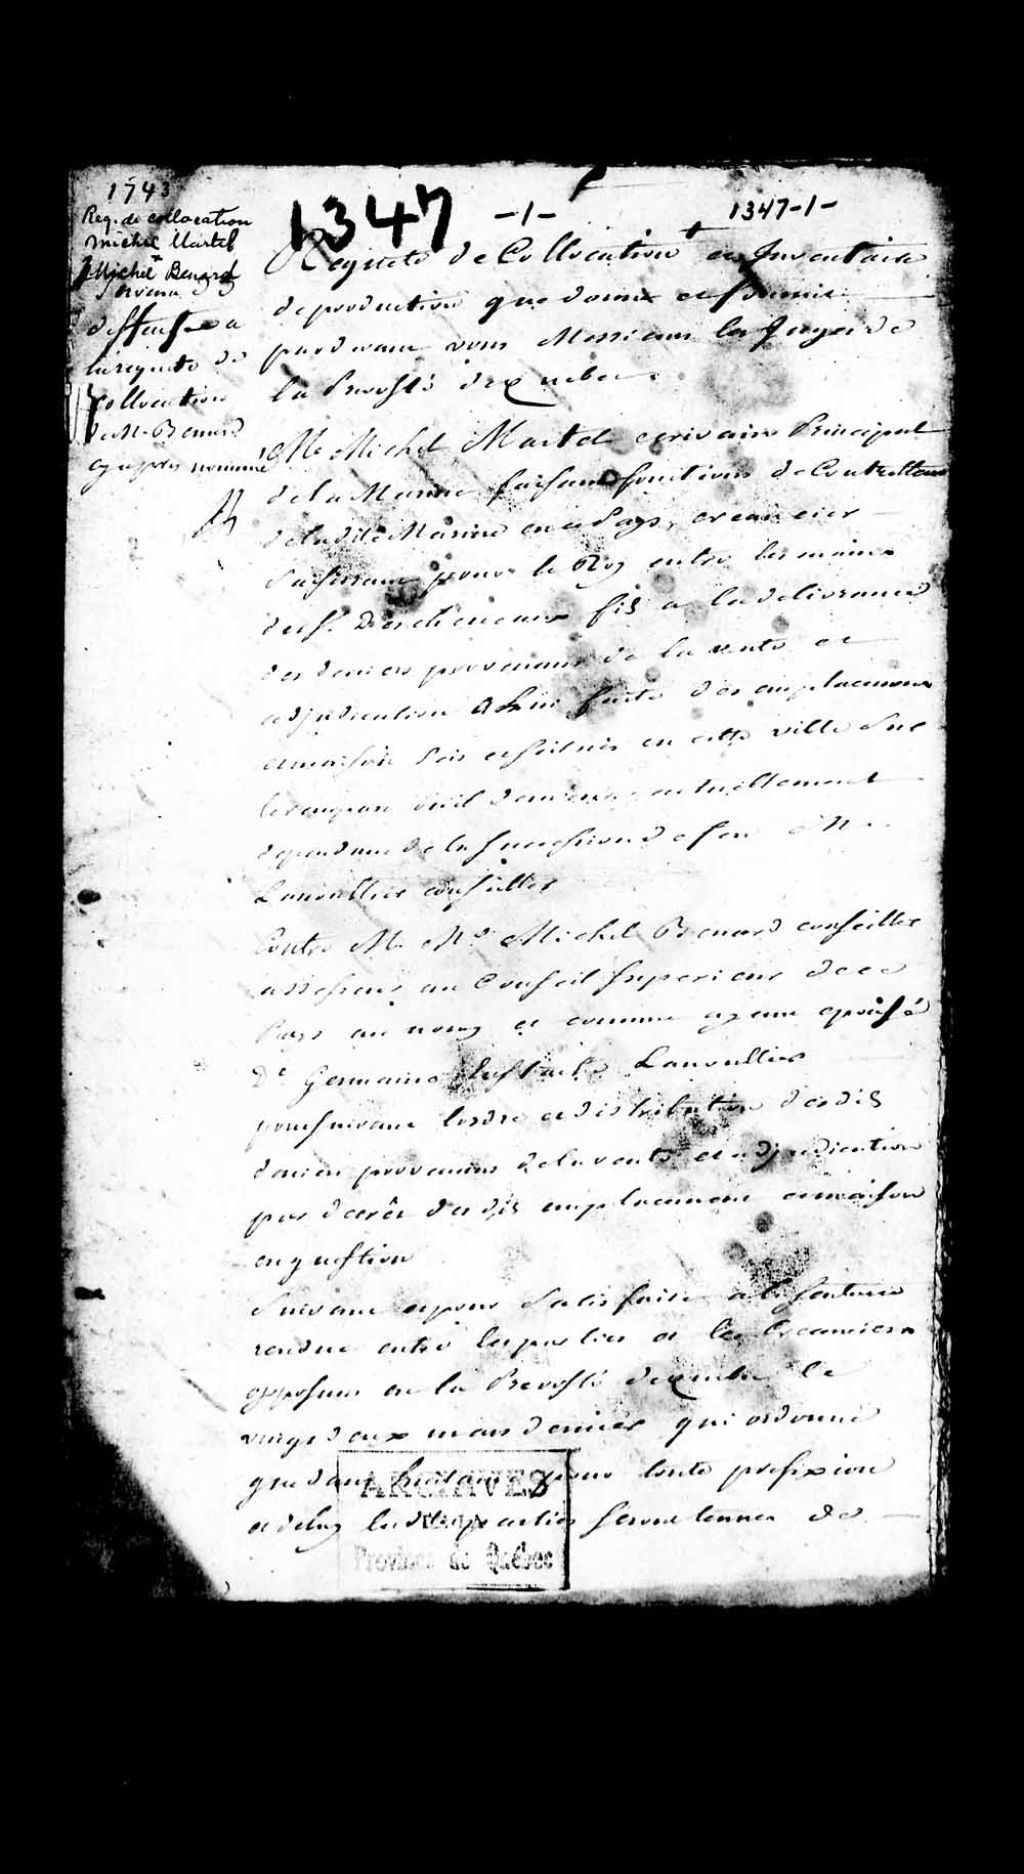 1743
Req. de collocation
Michel Martel
Michel Benard
Servant de
deffense a
la requete de
Collocation
de Mr. Benard
cy apres nommé
1347 -1- 1347-1-
Requete de Collocation et Inventaire
de production que donne et fournit
pardevant vous Messieurs les Juges de
la Prevosté de Quebec
Me Michel Martel ecrivain Principal
de la Marine faisant fonctions de Controlleur
de ladite Marine en ce Pays, creancier
saisissant pour le Roy entre les mains
du Sr. Descheneaux fils a la delivrance
des deniers provenans de la vente et
adjudication a luy faite des emplacement
et maison sis et situés en cette ville Sue
le rempart ou il demeure actuellement
dependans de la succession de feu Mr.
Lanoullier conseiller
Contre Me Mr Michel Benard conseiller
assesseur au Conseil Superieur de ce
Pays au nom et comme ayant epousé
De Germaine Eustache Lanoullier
poursuivant lordre et distribution desdits
deniers provenans de la vente et adjudication
par decret desdits emplacement et maison
en question
Suivant et pour Satisfaire a la Sentence
rendue entre les parties et les Creanciers
opposans en la Prevosté de Quebec le
vingt deux mars dernier qui ordonne
que dans huitaine pour toute prefixion
et delay lesdites parties seront tenues de
ARCHIVES
DE LA
Province de Québec